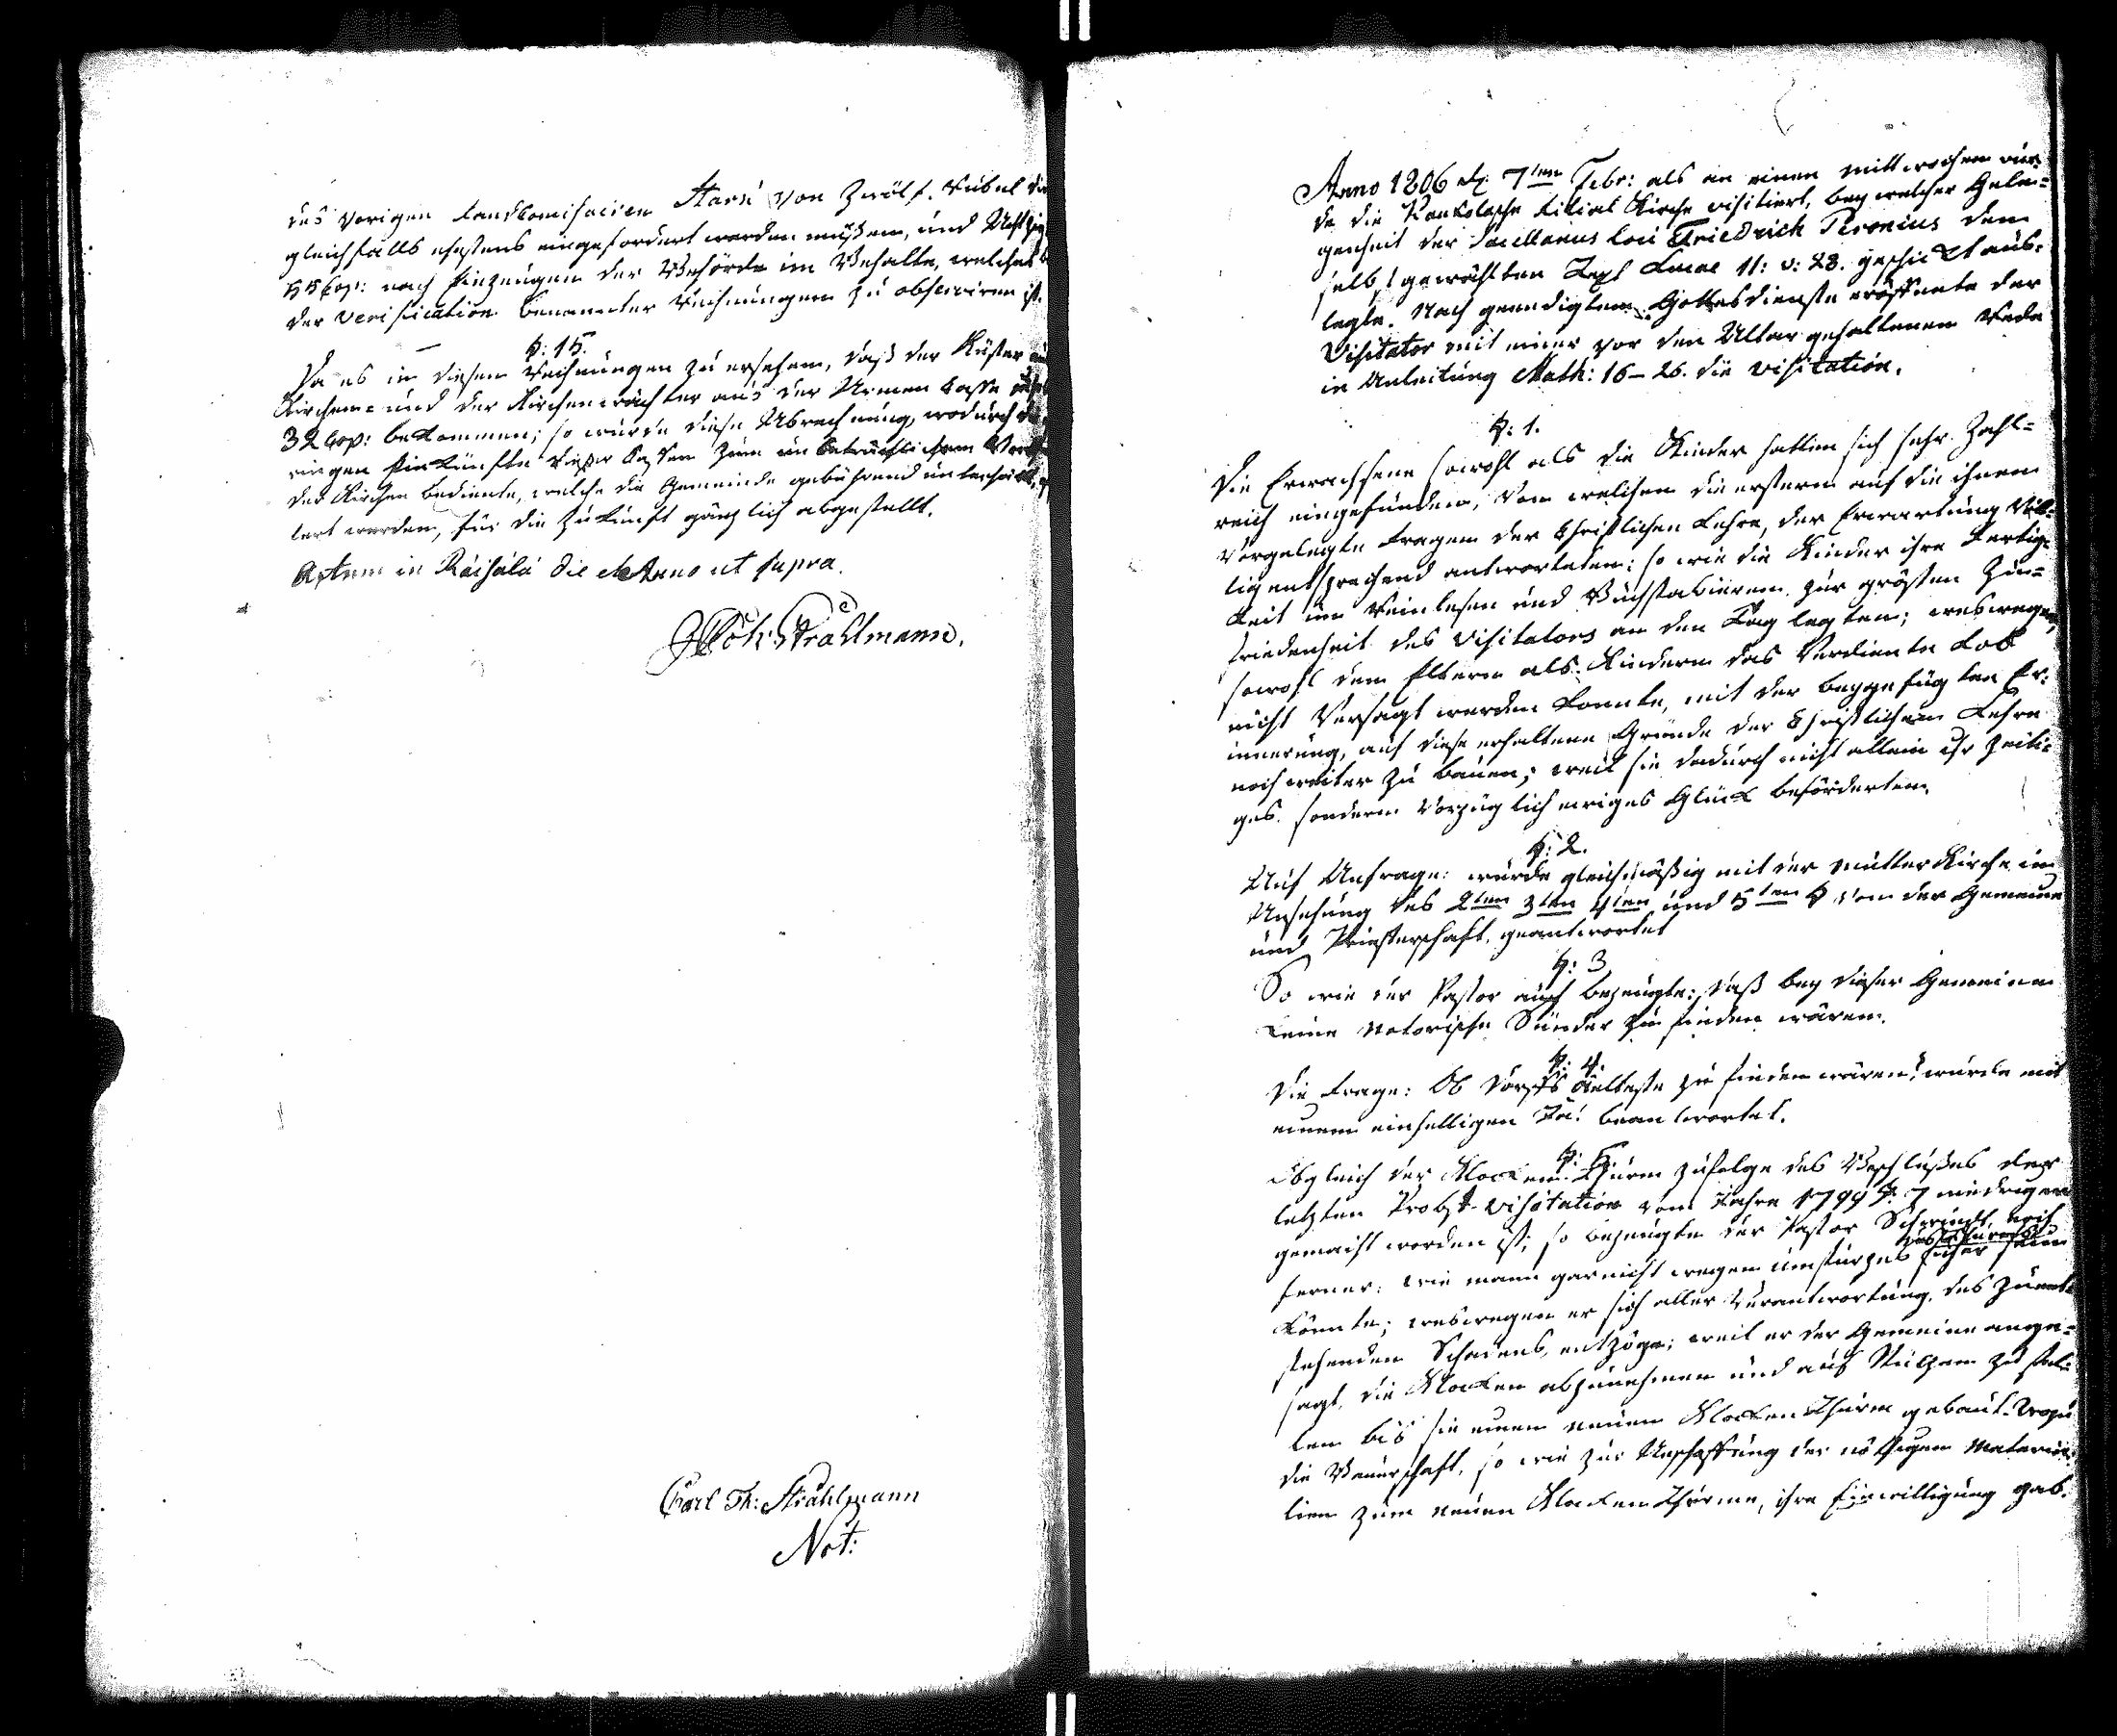 des vorigen Landcomissairen Staré von Zwölf Rubel die
gleichfalls ehestens eingefordert werden müßen, und Achtzig
55 Cop: nach Einzeugen der Behörde im Behalte, welches bey
der verification benannter Rechnungen zu observiren ist.
§: 15.
Da es in diesen Rechnungen zu ersehen, daß der Küster
Kirchen- und der Kirchenwächter aus der Armen Casse
32 Cop: bekommen; so wurde diese Abrechnung, wodurch die
ringen Einkünfte dieser Cassen zum unbeträchtlichem
der Kirchen Bediente, welche die Gemeinde gebührend unterhält,
tert werden, für die Zukunft gänzlich abgestellt.
Actum in Räisälä die et Anno ut supra.
Joh: Strahlmann.
Carl Th: Strahlmann
Not:
Anno 1806 d. 7ten Febr: als an einen Mittwochen wur-
de die Kaukolasche Filial Kirche visitiert, bey welcher Gele-
genheit der Sacellanus loci Friedrich Peronius den
selbst gewählten Text Lucae 11: v: 28. geschickt aus-
legte. Nach geendigtem Gottesdienste eröffnete der
Visitator mit einer vor den Altar gehaltenen Rede
in Anleitung Math: 16-26. die visitation.
§: 1.
Die Erwachsene sowohl als die Kinder hatten sich sehr Zahl-
reich eingefunden, von welchen die erstern auf die ihnen
vorgelegte Fragen der Christlichen Lehre, der Erwartung völ-
lig entsprechend antworteten; so wie die Kinder ihre Fertig-
keit im Reinlesen und Buchstabieren zur größten Zu-
friedenheit des Visitators an den Tag legten; weswegen
sowohl den Eltern als Kindern das verdiente Lob
nicht versagt werden konnte, mit der beygefügten Er-
innerung, auf diese erhaltene Gründe der Christlichen Lehre
noch weiter zu bauen; weil sie dadurch nicht allein ihr zeiti-
ges sondern vorzüglich ewiges Glück beförderten.
§: 2.
Auf Anfrage: wurde gleichmäßig mit der Mutter Kirche in
Ansehung des 2ten 3ten 4ten und 5ten § von der Gemeine
und Priesterschaft, geantwortet
§: 3
So wie der Pastor auch bezeugte: daß bey dieser Gemeine
keine notorische Sünder zu finden wären.
§: 4.
Die Frage: Ob Dorfs Aelteste zu finden wären? wurde mit
einem einhelligen Ja! beantwortet.
§: 5.
Obgleich der Klocken-Thurm zufolge des Beschlußes der
letzten Probst-visitation vom Jahre 1799 §: 7 niedriger
gemacht worden ist; so bezeugte der Pastor Schwindt noch
ferner: wie mann gar nicht wegen Umsturzes sicher seyn
könnte; weswegen er sich aller Verantwortung des zuent-
stehenden Schadens, entzöge; weil er der Gemeine ange-
sagt, die Klocken abzunehmen und auf Stützen zu stel-
len bis sie einen neuen Klocken Thurm gebaut. Wozu
die Bauerschaft, so wie zur Anschaffung der nöthigen Materia-
lien zum neuen Klocken Thurme, ihre Einwilligung gab.